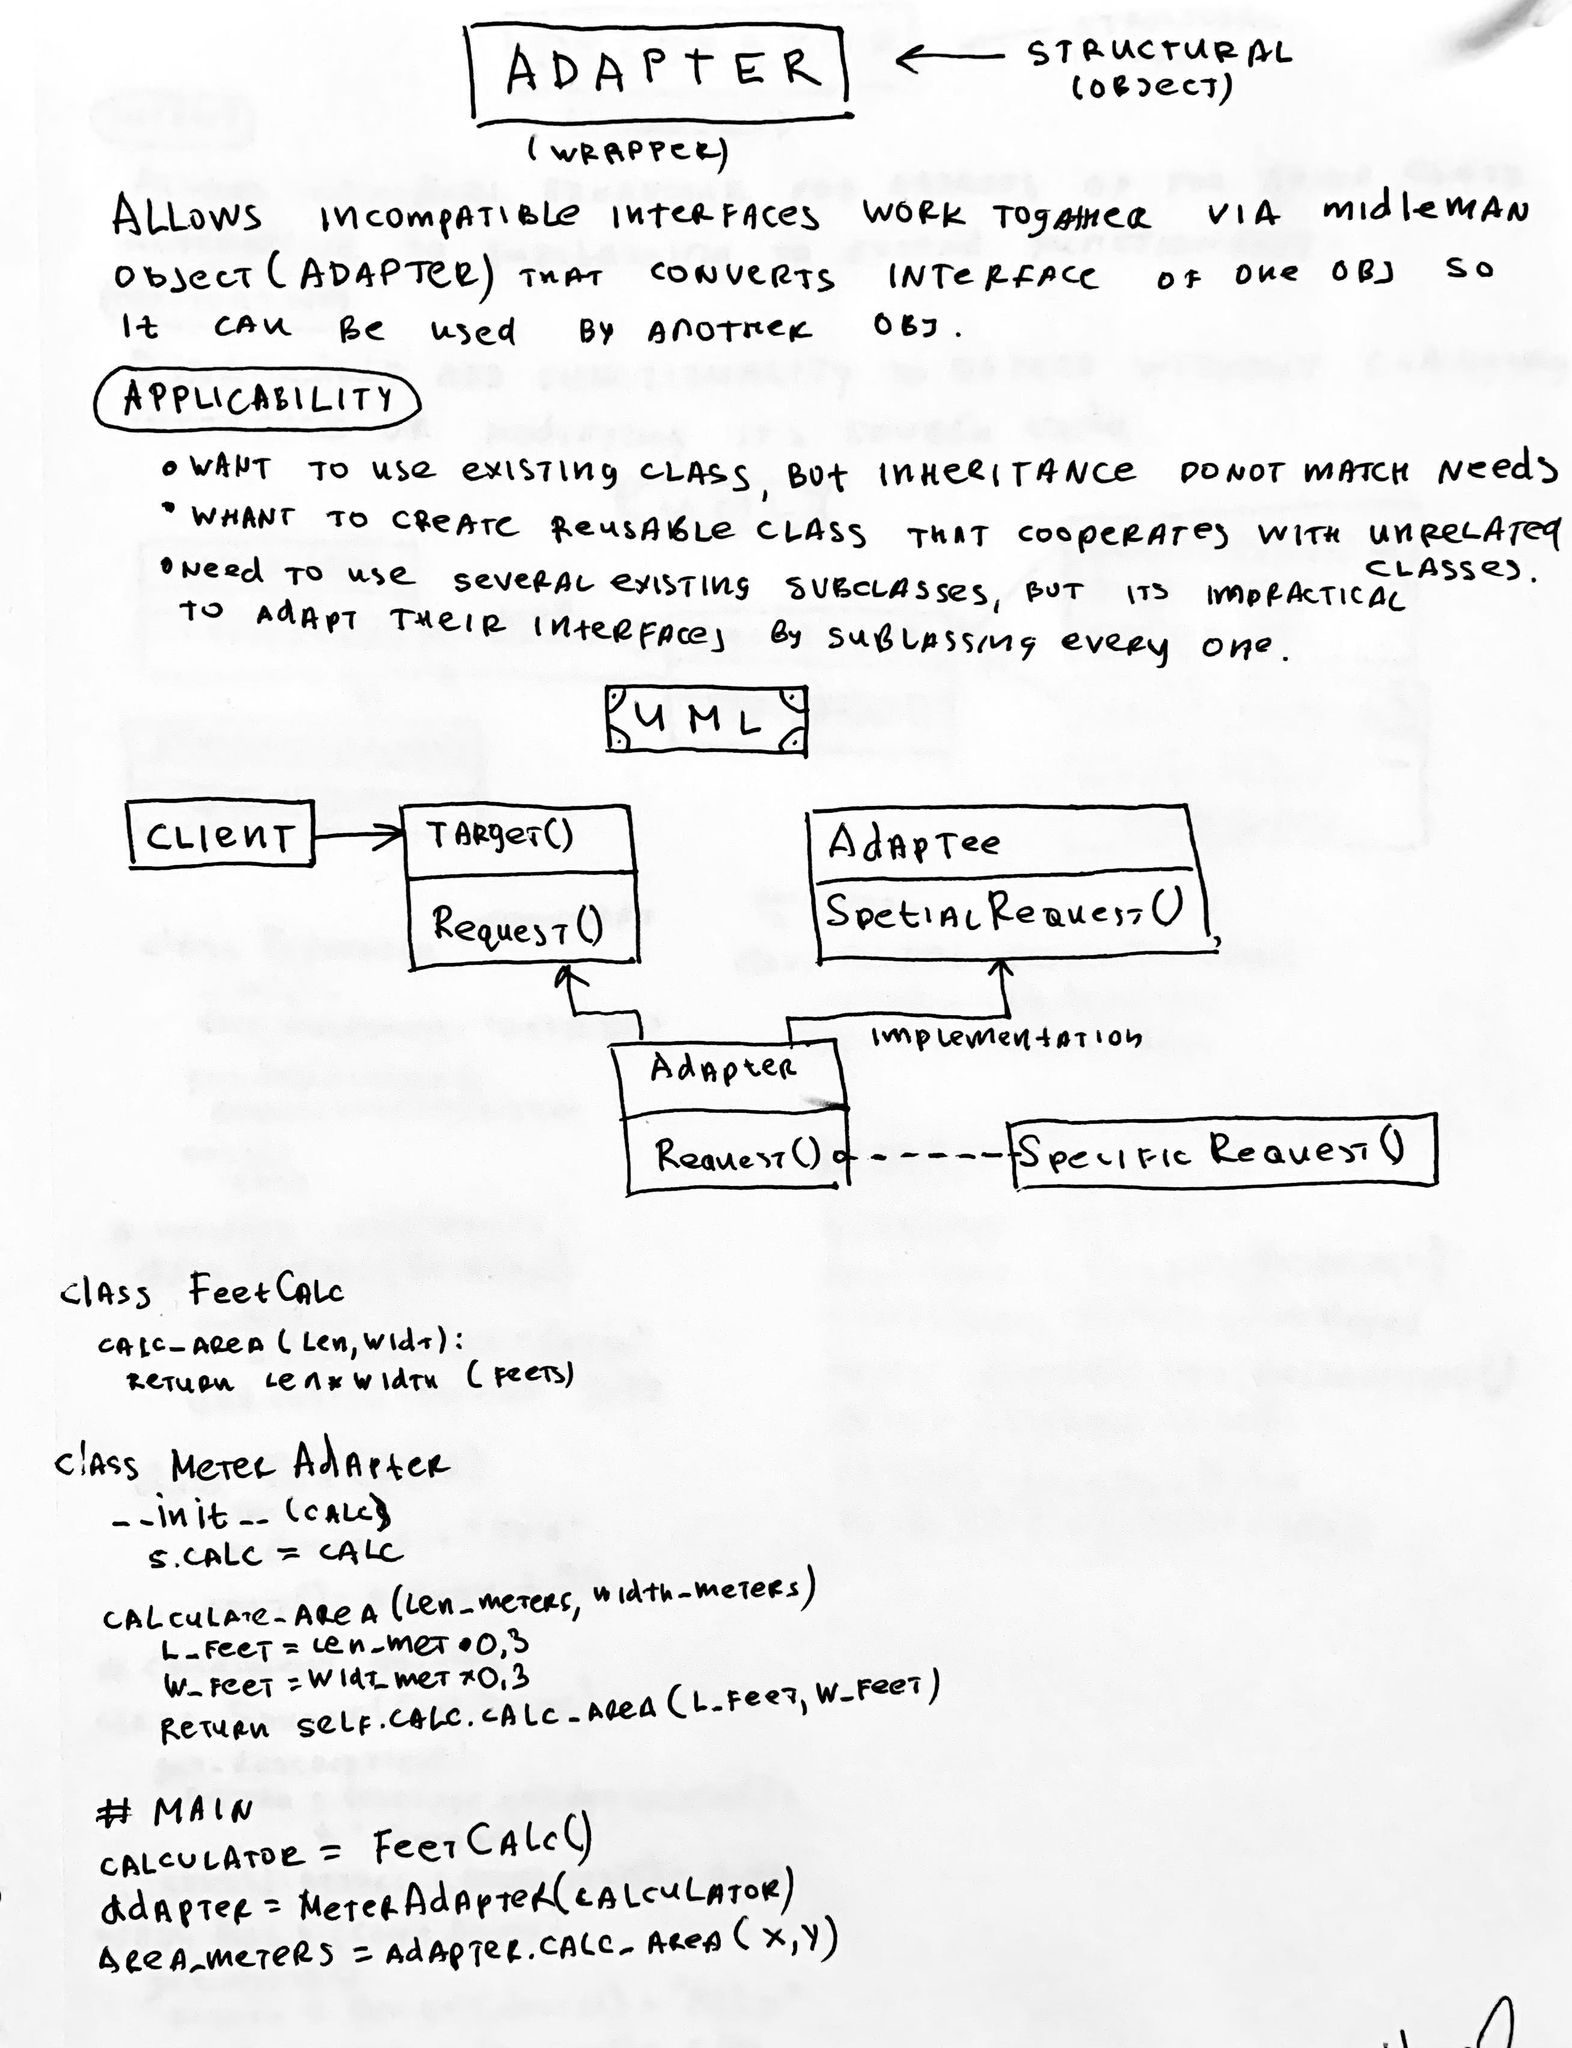 ADAPTER
STRUCTURAL
(OBJECT)
(WRAPPER)
ALLOWS INCOMPATIBLE INTERFACES WORK TOGATHER VIA MIDLEMAN
OBJECT (ADAPTER) THAT CONVERTS INTERFACE OF ONE OBJ SO
IT CAN BE USED BY ANOTHER OBJ.
APPLICABILITY
• WANT TO USE EXISTING CLASS, BUT INHERITANCE DO NOT MATCH NEEDS
• WHANT TO CREATE REUSABLE CLASS THAT COOPERATES WITH UNRELATED
CLASSES.
• NEED TO USE SEVERAL EXISTING SUBCLASSES, BUT ITS IMPRACTICAL
TO ADAPT THEIR INTERFACES BY SUBLASSING EVERY ONE.
UML
CLIENT
TARGET()
REQUEST()
ADAPTEE
SPETIAL REQUEST()
IMPLEMENTATION
ADAPTER
REQUEST()
SPECIFIC REQUEST()
class FeetCalc
CALC_AREA (LEN, WIDT):
RETURN LEN * WIDTH (FEETS)
class Meter Adapter
__init__ (CALC)
S.CALC = CALC
CALCULATE_AREA (LEN_METERS, WIDTH_METERS)
L_FEET = LEN_MET * 0,3
W_FEET = WIDT_MET * 0,3
RETURN SELF.CALC.CALC_AREA (L_FEET, W_FEET)
# MAIN
CALCULATOR = FeetCalc()
ADAPTER = MeterAdapter(CALCULATOR)
AREA_METERS = ADAPTER.CALC_AREA (X,Y)